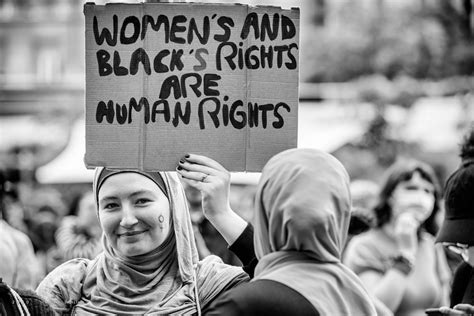 WOMEN'S AND
BLACK'S RIGHTS
ARE
HUMAN RIGHTS